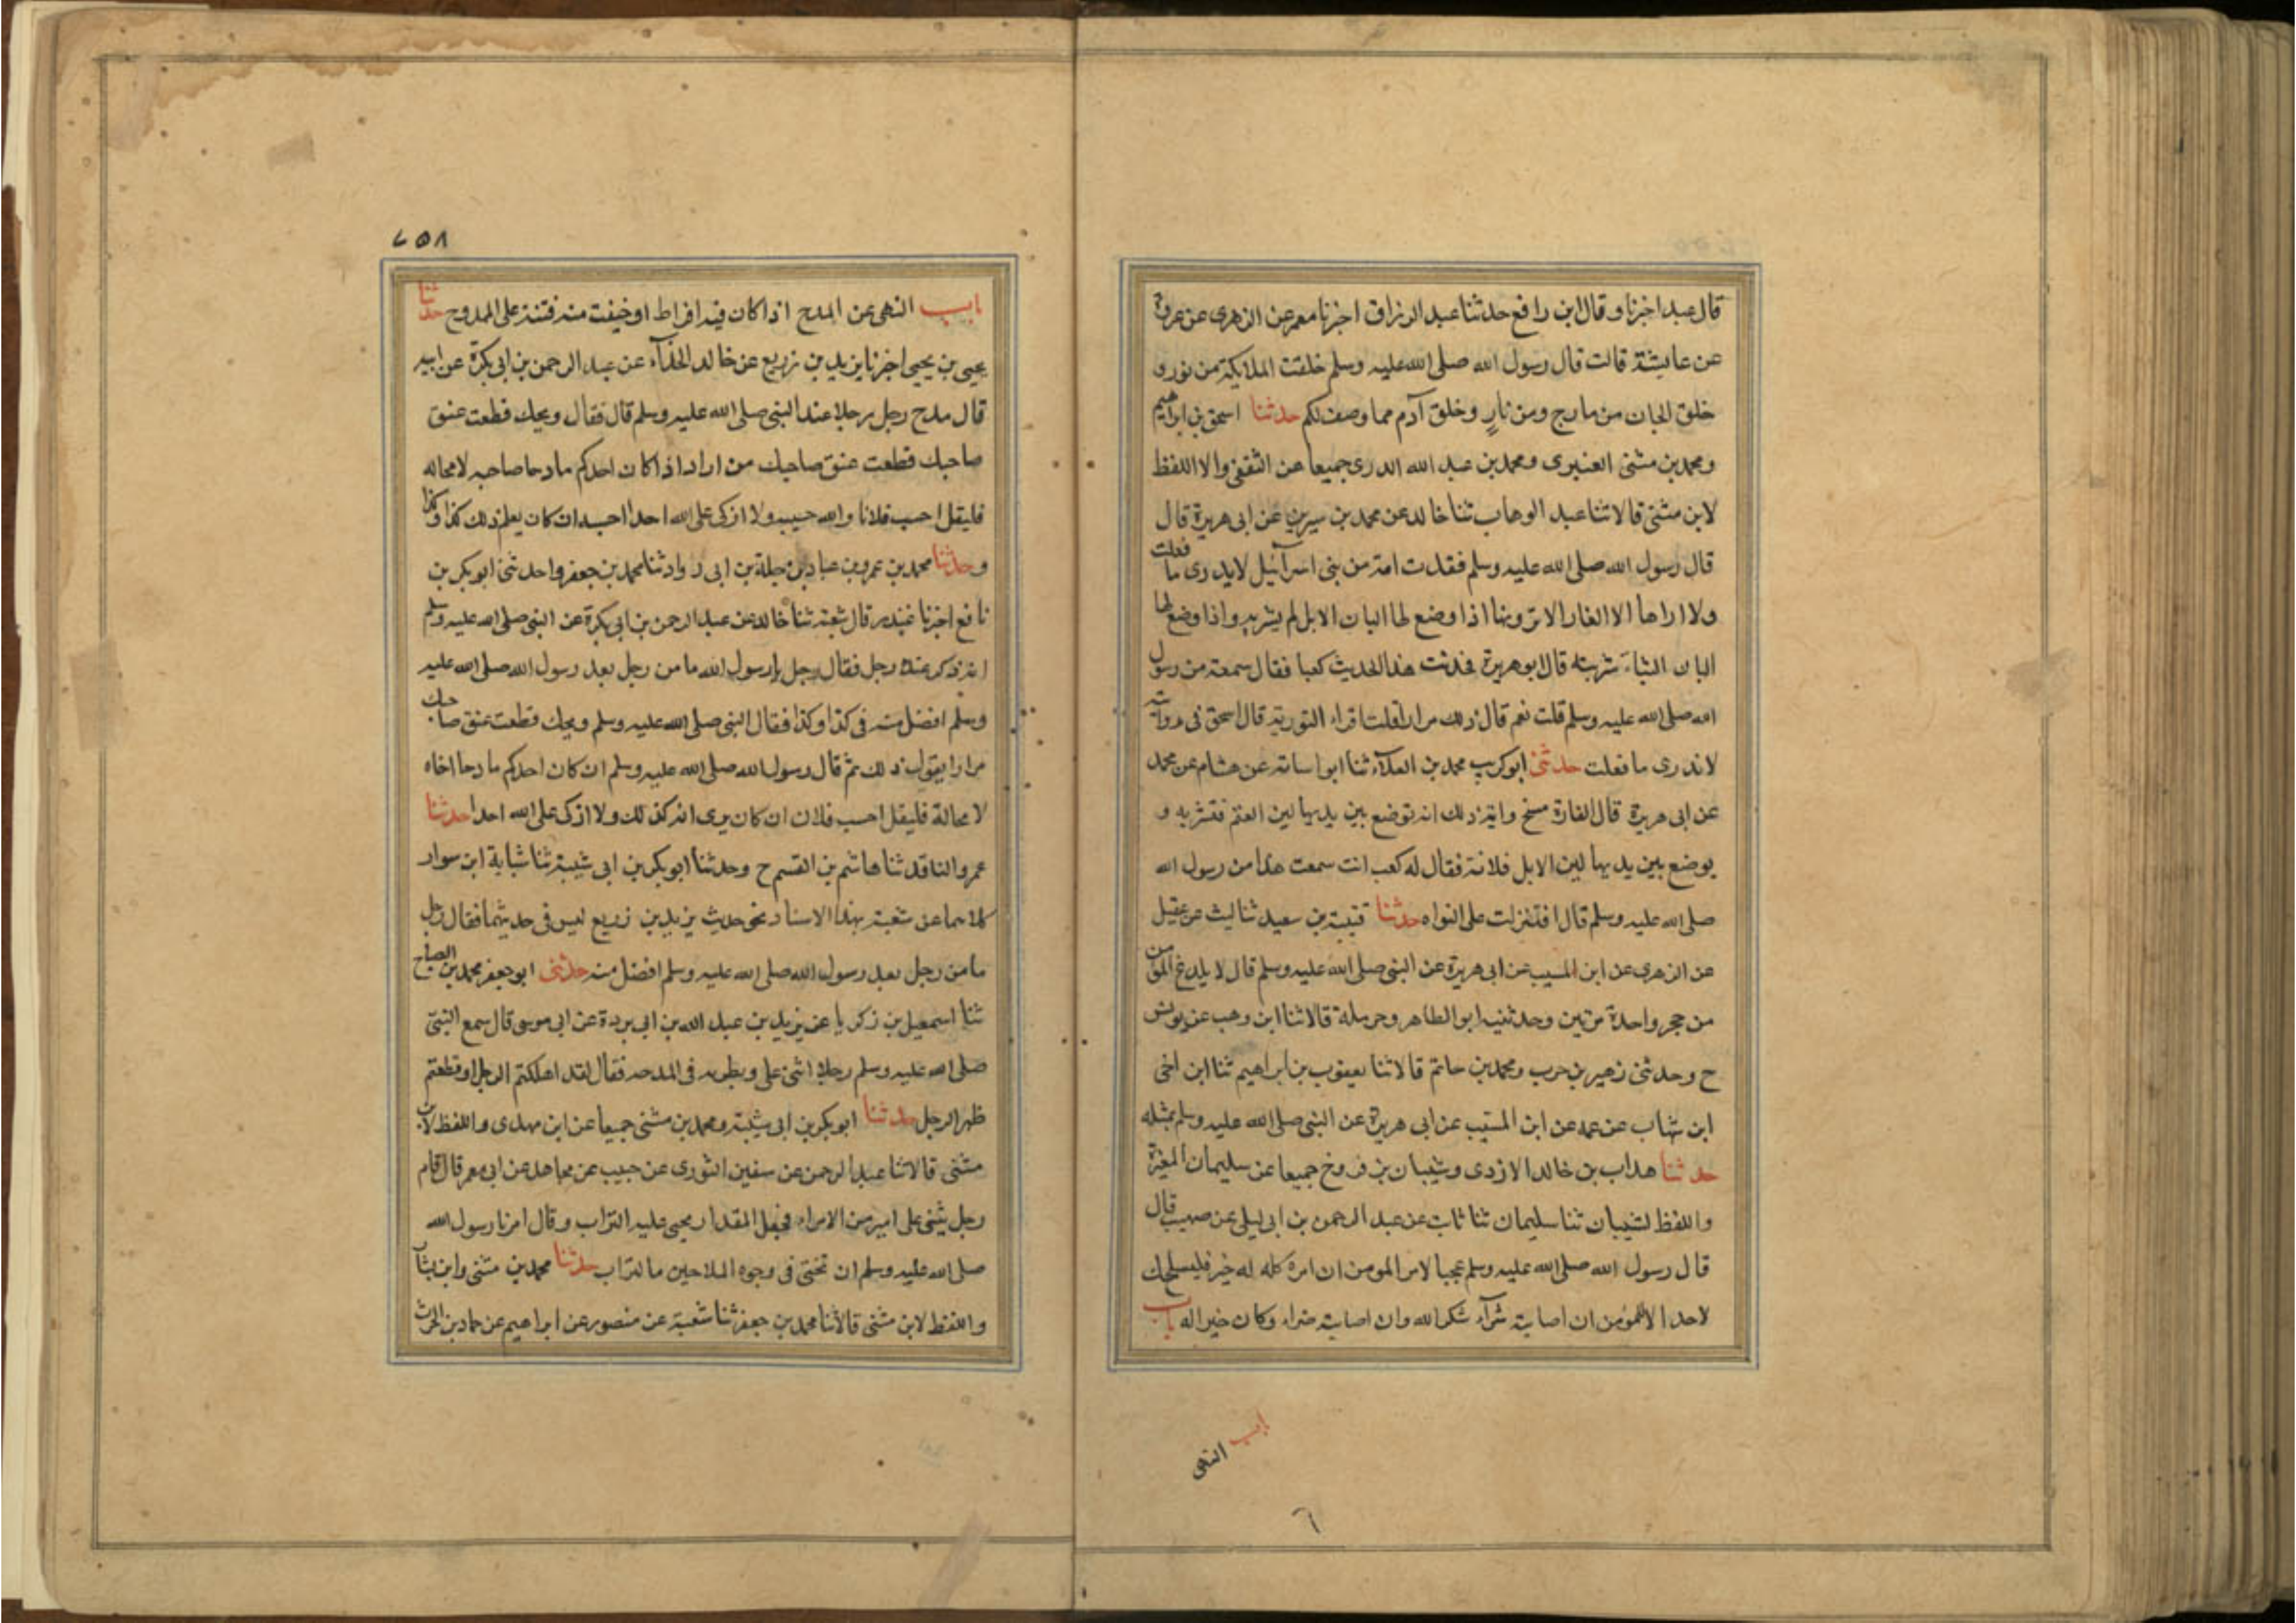 قال عبد اخبرنا وقال ابن رافع حدثنا عبد الرزاق اخبرنا معمر عن الزهري عن عروة
عن عايشة قالت قال رسول الله صلى الله عليه وسلم خلقت الملايكة من نور و
خلق الجان من مارج ومن نارٍ وخلق آدم مما وصف لكم حدثنا اسحق بن ابراهيم
ومحمد بن مثنى العنبرى ومحمد بن عبد الله الدرى جميعا عن الثقفى والا اللفظ
لابن مثنى قالا ثنا عبد الوهاب ثنا خالد عن محمد بن سيرين عن ابى هريرة قال
قال رسول الله صلى الله عليه وسلم فقدت امة من بنى اسرآئيل لا يدرى ما فعلت
ولا اراها الا الفار الا ترونها اذا وضع لها البان الابل لم يشربه واذا وضع لها
البان الشاء شربته قال ابو هريرة فحدثت هذا الحديث كعبا فقال سمعته من رسول
الله صلى الله عليه وسلم قلت نعم قال ذلك مرارا قلت اقراء التورية قال اسحق فى روايته
لا ندرى ما فعلت حدثنى ابو كريب محمد بن العلآء ثنا ابو اسامة عن هشام عن محمد
عن ابى هريرة قال الفارة مسخ واية ذلك انه توضع بين يديها لبن الغنم فتشربه و
يوضع بين يديها لبن الابل فلا فقال له كعب انت سمعت هذا من رسول الله
صلى الله عليه وسلم قال افتنزلت على التوراه حدثنا قتيبة بن سعيد ثنا ليث عن عقيل
عن الزهرى عن ابن المسيب عن ابى هريرة عن النبى صلى الله عليه وسلم قال لا يلدغ المؤمن
من حجر واحدة مرتين وحدثنيه ابو الطاهر وحرملة قالا ثنا ابن وهب عن يونس
ح وحدثنى زهير بن حرب ومحمد بن حاتم قالا ثنا يعقوب بن ابراهيم ثنا ابن اخى
ابن شهاب عن عمه عن ابن المسيب عن ابى هريرة عن النبى صلى الله عليه وسلم بمثله
حدثنا هداب بن خالد الازدى وشيبان بن فروخ جميعا عن سليمان المغيرة
واللفظ لشيبان ثنا سليمان ثنا ثابت عن عبد الرحمن بن ابى ليلى عن صهيب قال
قال رسول الله صلى الله عليه وسلم عجبا لامر المومن ان امره كله له خير فليس ذلك
لاحد الا للمؤمن ان اصابته سرآء شكر الله وان اصابته ضراء وكان خيرا له باب
باب النهى
٦
٤٥٨
باب النهى عن المدح اذا كان فيه افراط او خيفت منه فتنة على الممدوح حدثنا
يحيى بن يحيى اخبرنا يزيد بن زريع عن خالد الحذآء عن عبد الرحمن بن ابى بكرة عن ابيه
قال مدح رجل رجلا عند النبى صلى الله عليه وسلم قال فقال ويحك قطعت عنق
صاحبك قطعت عنق صاحبك من ارادا اذا كان احدكم مادحا صاحبه لا محاله
فليقل احسب فلانا والله حسيبه ولا ازكى على الله احدا احسبه ان كان يعلم ذلك كذا وكذا
وحدثنا محمد بن عمرو بن عباد بن جبلة بن ابى رواد ثنا محمد بن جعفر وحدثنى ابو بكر بن
نافع اخبرنا غندر قال شعبة ثنا خالد عن عبد الرحمن بن ابى بكرة عن النبى صلى الله عليه وسلم
انه ذكر عنده رجل فقال رجل يا رسول الله ما من رجل بعد رسول الله صلى الله عليه
وسلم افضل منه فى كذا وكذا فقال النبى صلى الله عليه وسلم ويحك قطعت عنق صاحبك
مرارا يقول ذلك ثم قال رسول الله صلى الله عليه وسلم ان كان احدكم مادحا اخاه
لا محالة فليقل احسب فلان ان كان يرى انه كذلك ولا ازكى على الله احدا حدثنا
عمرو الناقد ثنا هاشم بن القسم ح وحدثنا ابو بكر بن ابى شيبة ثنا شبابة ابن سوار
كلاهما عن شعبة بهذا الاسناد نحو حديث يزيد بن زريع ليس فى حديثهما فقال رجل
ما من رجل بعد رسول الله صلى الله عليه وسلم افضل منه حدثنى ابو جعفر محمد بن الصباح
ثنا اسمعيل بن زكريا عن يزيد بن عبد الله بن ابى بردة عن ابى موسى قال سمع النبى
صلى الله عليه وسلم رجلا اثنى على ويطريه فى المدحه فقال لقد اهلكتم الرجل او قطعتم
ظهر الرجل حدثنا ابو بكر بن ابى شيبة ومحمد بن مثنى جميعا عن ابن مهدى واللفظ لابن
مثنى قالا ثنا عبد الرحمن عن سفين الثورى عن حبيب عن مجاهد عن ابى معمر قال قام
رجل يثنى على امير من الامراء فجعل المقداد يحيى عليه التراب وقال امرنا رسول الله
صلى الله عليه وسلم ان نحثى فى وجوه المداحين مالتراب حدثنا محمد بن مثنى وابن بشار
واللفظ لابن مثنى قالا ثنا محمد بن جعفر ثنا شعبة عن منصور عن ابراهيم عن همام بن الحرث